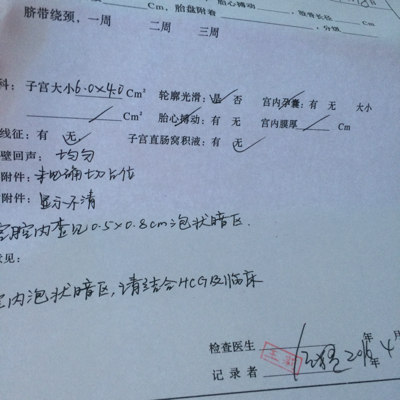 Cm, 胎盘附着 胎心搏动 , 股骨长径
脐带绕颈,一周 二周 三周 , 分级
科: 子宫大小 6.0×4.0 Cm² 轮廓光滑: 是 否 宫内孕囊: 有 无 大小
Cm² 胎心搏动: 有 无 宫内膜厚 Cm
线征: 有 无 子宫直肠窝积液: 有 无
壁回声: 均匀
附件: 未见明确切占位
附件: 显示不清
宫腔内查见0.5×0.8cm泡状暗区.
意见:
宫内泡状暗区,请结合HCG及临床
检查医生
记录者 年 4月